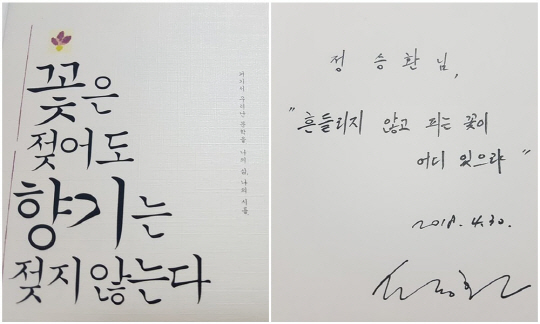 꽃은
젖어도
향기는
젖지 않는다
나의 삶, 나의
정 승 환 님,
"흔들리지 않고 피는 꽃이
어디 있으랴"
2018. 4. 30.